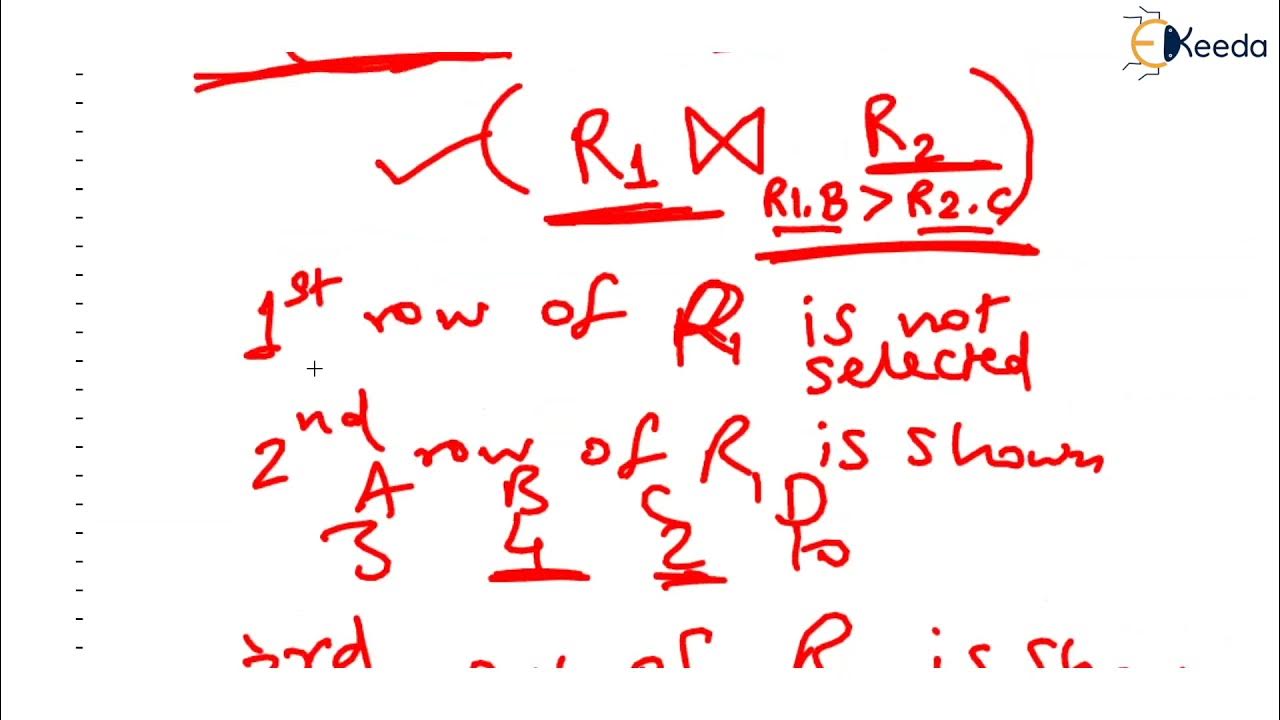 EKeeda
(R1 ⋈ R2)
R1.B > R2.C
1st row of R1 is not
selected
2nd row of R1 is shown
A B C D
3 4 2 10
3rd row of R is sh